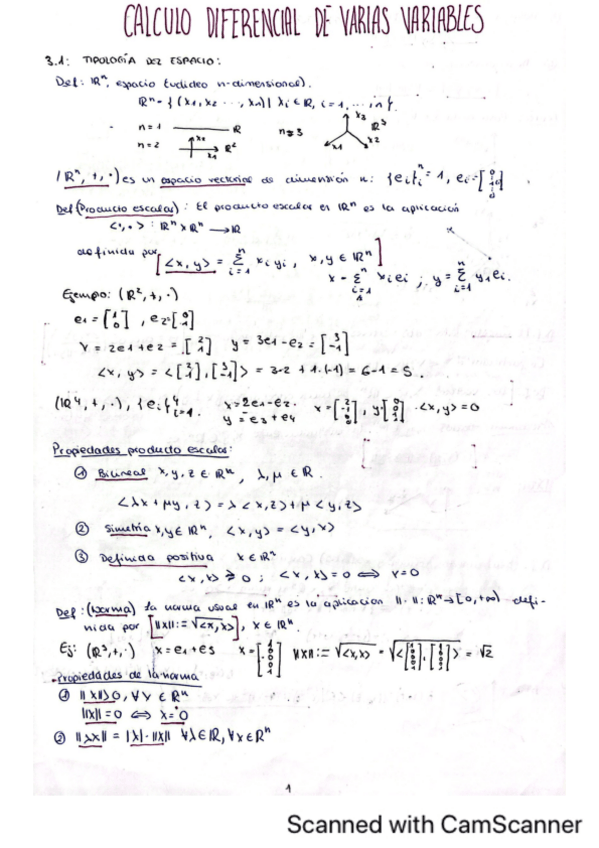 CALCULO DIFERENCIAL DE VARIAS VARIABLES
3.1: TIPOLOGÍA DEL ESPACIO:
Def: ℝⁿ, espacio Euclideo n-dimensional).
ℝⁿ = { (x1, x2 ..., xn) | xi ∈ ℝ, i = 1, ... in }.
n = 1 ℝ n=3 x3 ℝ³
n = 2 x2 x1 ℝ² x1 x2
(ℝⁿ, +, ·) es un espacio vectorial de dimensión n: {ei}ⁿi = 1, ei =
Def (Producto escalar): El producto escalar en ℝⁿ es la aplicación
<·, ·> : ℝⁿ x ℝⁿ → ℝ
definida por [<x, y> = Σⁿi=1 xi yi, x, y ∈ ℝⁿ]
x = Σⁿi=1 xiei ; y = Σⁿi=1 yiei.
Ejempo: (ℝ², +, ·)
e1 = [1 0], e2 [0 1]
x = 2e1 + e2 = [2 1] y = 3e1 - e2 = [3 -1]
<x, y> = <[2 1], [3 -1]> = 3·2 + 1·(-1) = 6 - 1 = 5.
(ℝ⁴, +, ·), {ei}⁴i=1. x = 2e1 - e2. x = [2 -1 0 0], y [0 0 1 1] · <x, y> = 0
y = e3 + e4
Propiedades producto escalar:
① Bilineal x, y, z ∈ ℝⁿ, λ, μ ∈ ℝ.
<λx + μy, z> = λ <x, z> + μ <y, z>
② Simetría x, y ∈ ℝⁿ, <x, y> = <y, x>
③ Definida positiva x ∈ ℝⁿ
<x, x> ≥ 0 ; <x, x> = 0 ⟺ x = 0
Def: (Norma) la norma usual en ℝⁿ es la aplicacion ||·|| : ℝⁿ → [0, +∞) defi-
nida por [||x|| := √<x, x>], x ∈ ℝⁿ.
Ej: (ℝ⁵, +, ·) x = e1 + e5 x = [1 0 0 0 1] ||x|| := √<x, x> = √<[1 0 0 0 1], [1 0 0 0 1]> = √2
Propiedades de la norma
① ||x|| ≥ 0, ∀x ∈ ℝⁿ
||x|| = 0 ⟺ x = 0
② ||λx|| = |λ| · ||x|| ∀λ ∈ ℝ, ∀x ∈ ℝⁿ
1
Scanned with CamScanner